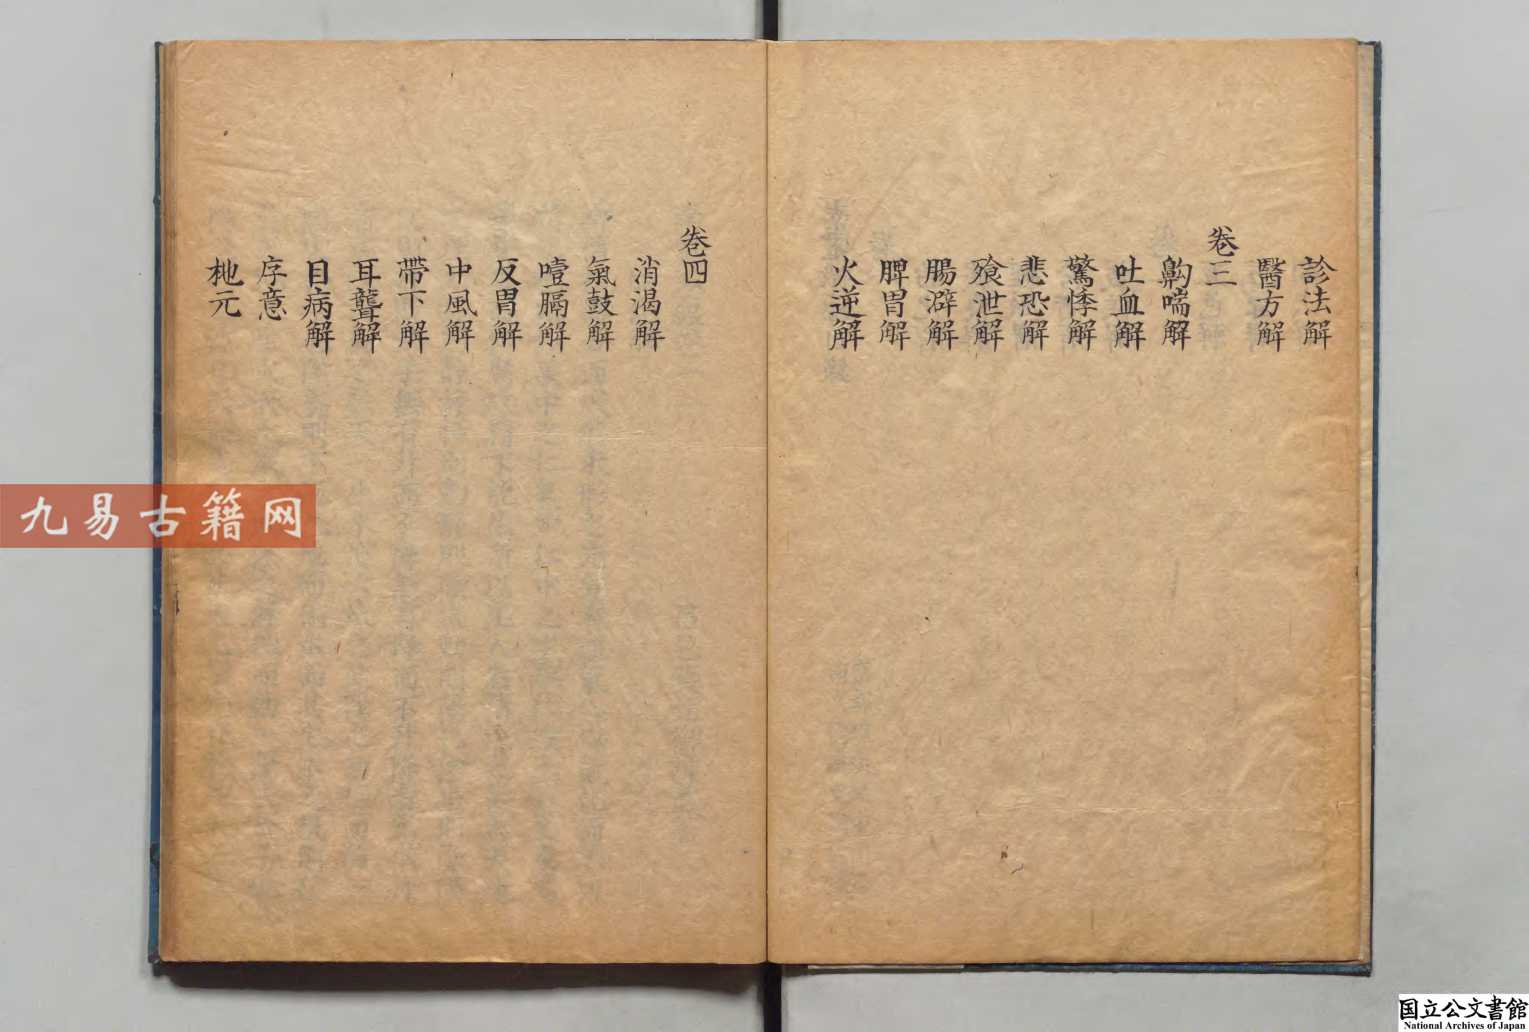 診法解
醫方解
卷三
齁喘解
吐血解
驚悸解
悲恐解
飱泄解
腸澼解
脾胃解
火逆解
卷四
消渴解
氣鼓解
噎膈解
反胃解
中風解
帶下解
耳聾解
目病解
序意
杝元
九易古籍网
国立公文書館
National Archives of Japan